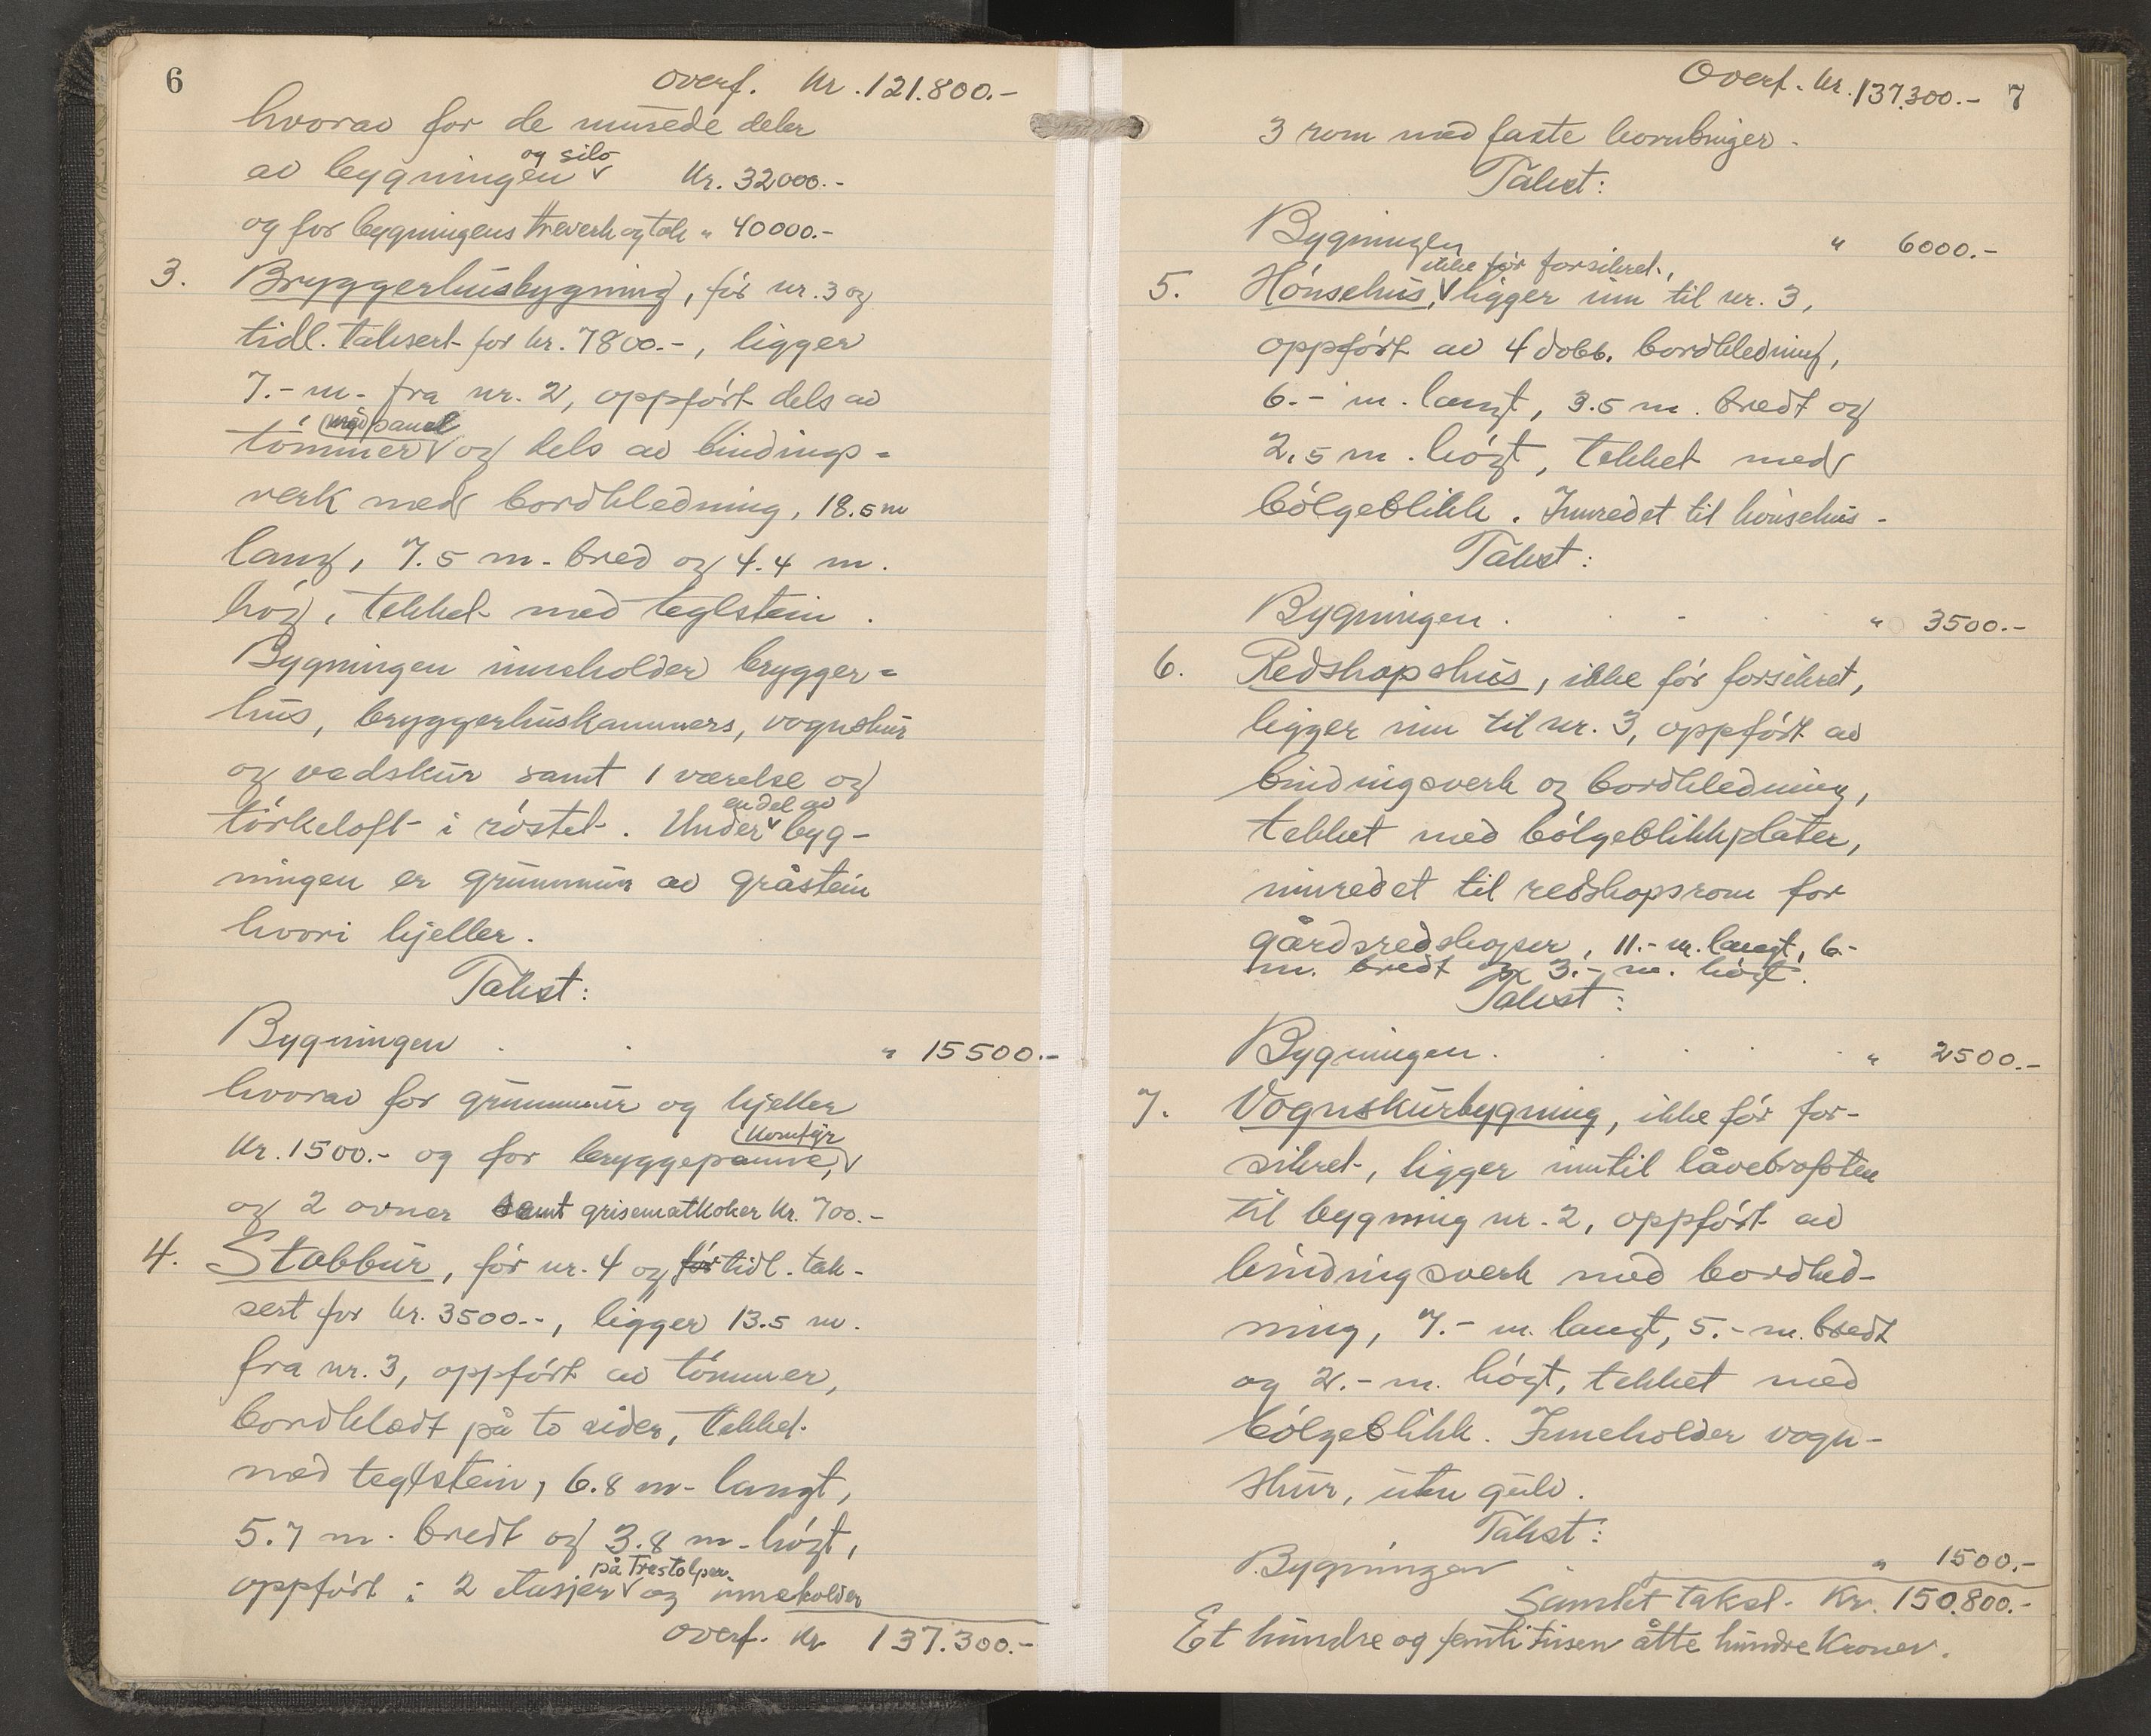 6
overf. Kr. 121.800.-
hvorav for de murede deler
av bygningen og silo Kr. 32000.-
og for bygningens treverk og tak " 40000.-
3. Bryggerhusbygning, før nr. 3 og
tidl. taksert for kr. 7800.-, ligger
7.- m. fra nr. 2, oppført dels av
tømmer med panel og dels av bindings=
verk med bordkledning, 18.5 m
lang, 7.5 m. bred og 4.4 m.
høg, tekket med teglstein.
Bygningen inneholder brygger=
hus, bryggerhuskammers, vognskur
og vedskur samt 1 værelse og
tørkeloft i røstet. Under en del av byg-
ningen er grunnmur av gråstein
hvori kjeller.
Takst:
Bygningen . . " 15500.-
hvorav for grunnmur og kjeller
Kr. 1500.- og for bryggepanne, Komfyr
og 2 ovner samt grisematkoker Kr. 700.-
4. Stabbur, før nr. 4 og før tidl. tak-
sert for kr. 3500.-, ligger 13.5 m.
fra nr. 3, oppført av tømmer,
bordkledt på to sider, tekket
med teglstein, 6.8 m. langt,
5.7 m. bredt og 3.8 m. høgt,
oppført i 2 etasjer på trestolper og inneholder
overf. Kr 137.300.-
Overf. Kr. 137.300.- 7
3 rom med faste kornbinger.
Takst:
Bygningen " 6000.-
5. Hønsehus, ikke før forsikret, ligger inn til nr. 3,
oppført av 4 dobb. bordkledning,
6.- m. langt, 3.5 m. bredt og
2,5 m. høgt, tekket med
bølgeblikk. Innredet til hønsehus.
Takst:
Bygningen . . . " 3500.-
6. Redskapshus, ikke før forsikret,
ligger inn til nr. 3, oppført av
bindingsverk og bordkledning,
tekket med bølgeblikkplater,
innredet til redskapsrom for
gårdsredskaper, 11.- m. langt, 6.-
m. bredt og 3.- m. høgt.
Takst:
Bygningen . . . . " 2500.-
7. Vognskurbygning, ikke før for-
sikret, ligger inntil låvebrofoten
til bygning nr. 2, oppført av
bindingsverk med bordkled-
ning, 7.- m. langt, 5.- m. bredt
og 2.- m. høgt, tekket med
bølgeblikk. Inneholder vogn-
skur, uten gulv.
Takst:
Bygningen . " 1500.-
Samlet takst. Kr. 150.800.-
Et hundre og femti tusen åtte hundre Kroner.